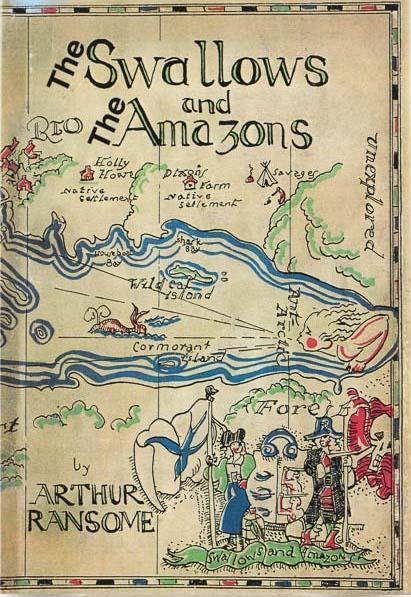 The Swallows
and
The Amazons
RIO
Holly
Howe
Native
settlement
Dixons
Farm
Native
settlement
Savages
unexplored
Houseboat
Bay
Shark
Bay
Wild Cat
Island
Cormorant
Island
Forest
by
ARTHUR
RANSOME
Swallows and Amazons